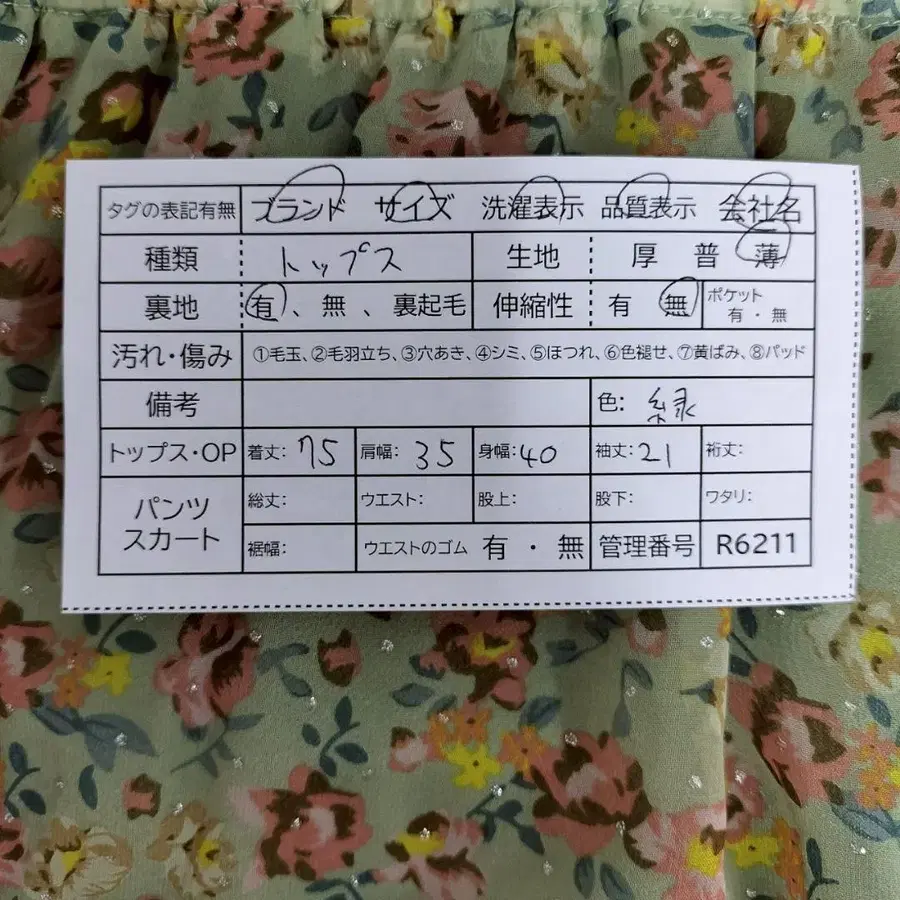 タグの表記有無 ブランド サイズ 洗濯表示 品質表示 会社名
種類 トップス 生地 厚 普 薄
裏地 有、無、裏起毛 伸縮性 有 無 ポケット 有・無
汚れ・傷み ①毛玉、②毛羽立ち、③穴あき、④シミ、⑤ほつれ、⑥色褪せ、⑦黄ばみ、⑧パッド
備考 色: 緑
トップス・OP 着丈: 75 肩幅: 35 身幅: 40 袖丈: 21 裄丈:
パンツ スカート 総丈: ウエスト: 股上: 股下: ワタリ:
裾幅: ウエストのゴム 有・無 管理番号 R6211